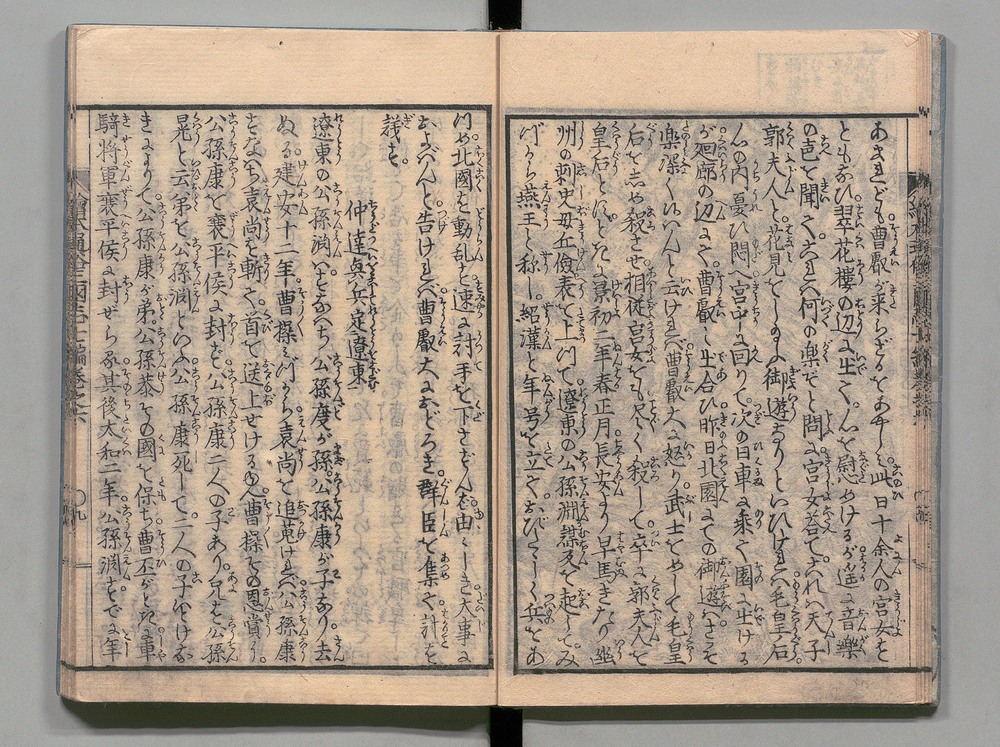 あまれども曹叡が来らざるをあやしみ此日十余人の宮女を
ともなひ翠花楼の辺に出て心を慰めけるが遥に音樂
の声を聞て是れ何の楽ぞと問に宮女答てこれハ天子
郭夫人と花見をしたまふ御遊なりといひけれバ毛皇后
心の内憂ひ悶へ宮中に回りて次の日車に乘て園に出ける
が廻廊の辺にて曹叡に出合ひ昨日北園にての御遊さこそ
楽深く候ハんと云けれバ曹叡大に怒り武士をめして毛皇
后をしめ殺させ相従宮女をも尽く殺して卒に郭夫人を
皇后とぞしたりける景初二年春正月長安より早馬きたり幽
州の刺史毋丘儉表を上つて遼東の公孫淵謀反を起してみ
づから燕王と称し紹漢と年号を立ておびたゞしく兵をあ
つめ北國を動乱す速に討手を下さるべき由申しき大事に
およバんと告けれバ曹叡大におどろき群臣を集て計を
議す
仲達興兵定遼東
遼東の公孫淵ハすなハち公孫度が孫公孫康が子なり去
ぬる建安十二年曹操みづから袁尚を追蒐けれバ公孫康
すなハち袁尚を斬て首を送上せけるゆへ曹操その恩賞に
公孫康を襄平侯に封ず公孫康二人の子あり兄を公孫
晃と云弟を公孫淵といふ公孫康死して二人の子いとけな
きによりて公孫康が弟公孫恭その國を保ち曹丕がとき車
騎将軍襄平侯に封ぜらる其後大和二年公孫淵すでに年